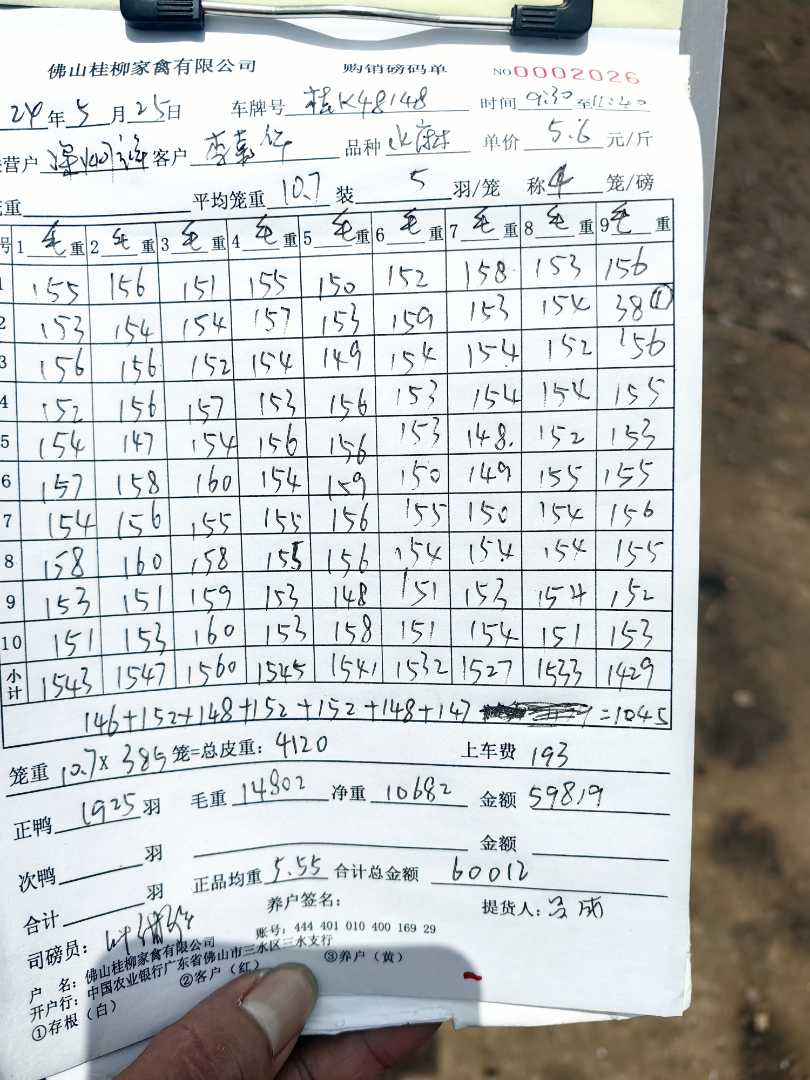 佛山桂柳家禽有限公司 购销磅码单 NO 0002026
24年5月25日 车牌号 桂K48148 时间 9:30至11:40
营户 客户 品种 单价 5.6 元/斤
重 平均笼重 10.7 装 5 羽/笼 称 4 笼/磅
号 1 毛重 2 毛重 3 毛重 4 毛重 5 毛重 6 毛重 7 毛重 8 毛重 9 毛重
1 155 156 151 155 150 152 158 153 156
2 153 154 154 157 153 159 153 154 38①
3 156 156 152 154 149 154 154 152 156
4 152 156 157 153 156 153 154 154 155
5 154 147 154 156 156 153 148 152 153
6 157 158 160 154 159 150 149 155 155
7 154 156 155 155 156 155 150 154 156
8 158 160 158 155 156 154 154 154 155
9 153 151 159 153 148 151 153 154 152
10 151 153 160 153 158 151 154 151 153
小计 1543 1547 1560 1545 1541 1532 1527 1533 1429
146+152+148+152+152+148+147 =1045
笼重 10.7×385笼=总皮重: 4120 上车费 193
正鸭 1925 羽 毛重 14802 净重 10682 金额 59819
次鸭 羽 金额
合计 羽 正品均重 5.55 合计总金额 60012
司磅员: 养户签名: 提货人:
户 名: 佛山桂柳家禽有限公司 账号: 444 401 010 400 169 29
开户行: 中国农业银行广东省佛山市三水区三水支行
①存根(白) ②客户(红) ③养户(黄)